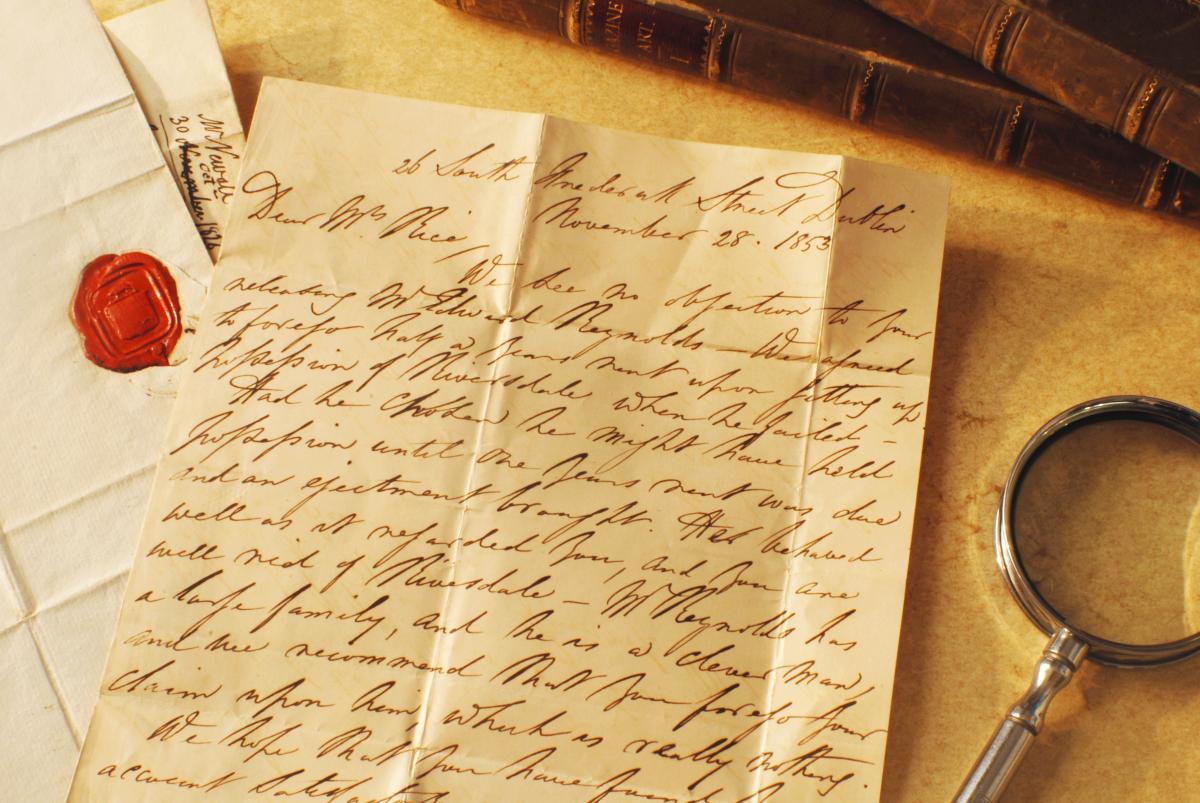 26 South Frederick Street Dublin
November 28. 1853
Dear Mrs Rice,
We see no objection to your
releasing Mr Edward Reynolds – We agreed
to forego half a years rent upon fitting up
possession of Riversdale when he failed –
Had he chosen he might have held
possession until one years rent was due
and an ejectment brought. He behaved
well as it regarded you, and you are
well rid of Riversdale – Mr Reynolds has
a large family, and he is a clever man,
and we recommend that you forego your
claim upon him which is really nothing.
We hope that you have found
account
30
AZINE
ART.
I